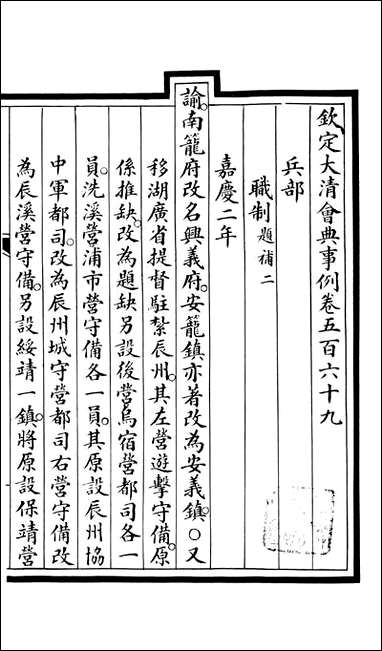 欽定大清會典事例卷五百六十九
兵部
職制題補二
嘉慶二年
諭。南籠府改名興義府。安籠鎮亦著改為安義鎮。○又
移湖廣省提督駐紮辰州。其左營遊擊守備。原
係推缺。改為題缺。另設後營烏宿營都司各一
員。洗溪營浦市營守備各一員。其原設辰州協
中軍都司。改為辰州城守營都司。右營守備改
為辰溪營守備。另設綏靖一鎮。將原設保靖營